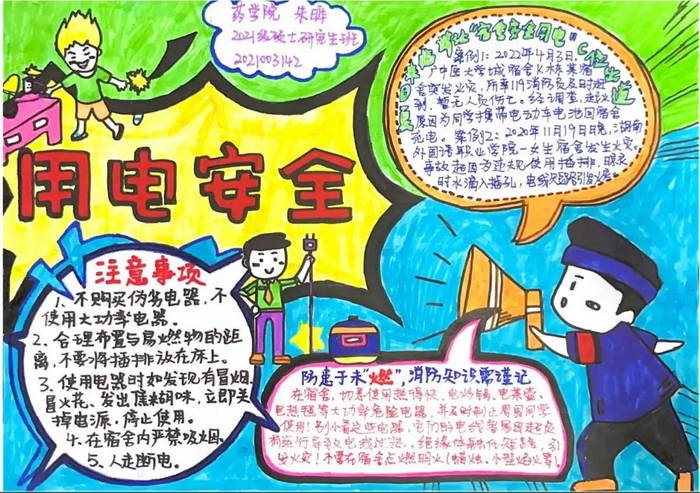 药学院 朱晔
2021级硕士研究生班
2021003142
用电安全
案例1: 2022年4月3日,
广中医大学城宿舍K栋某宿
舍突发火灾, 所幸119消防员及时赶
到, 暂无人员伤亡。经调查, 起火
原因为同学携带电动车电池回宿舍
充电。案例2: 2020年11月19日晚, 湖南
外国语职业学院一女生宿舍发生火灾,
事故起因为违规使用插排, 晾衣
时水滴入插孔, 电线短路引发火灾
注意事项
1、不购买伪劣电器, 不
使用大功率电器。
2、合理布置与易燃物的距
离, 不要将插排放在床上。
3、使用电器时如发现有冒烟、
冒火花、发出焦糊味, 立即关
掉电源, 停止使用。
4、在宿舍内严禁吸烟。
5、人走断电。
防患于未"燃", 消防知识需谨记
在宿舍, 切忌使用热得快、电炒锅、电蒸壶、
电热毯等大功率危险电器, 并及时制止周围同学
使用! 别小看这些电器, 它们的电线容易因超负
荷运行导致电线
发火灾! 不要在宿舍点燃明火(蜡烛、小型烟火等)